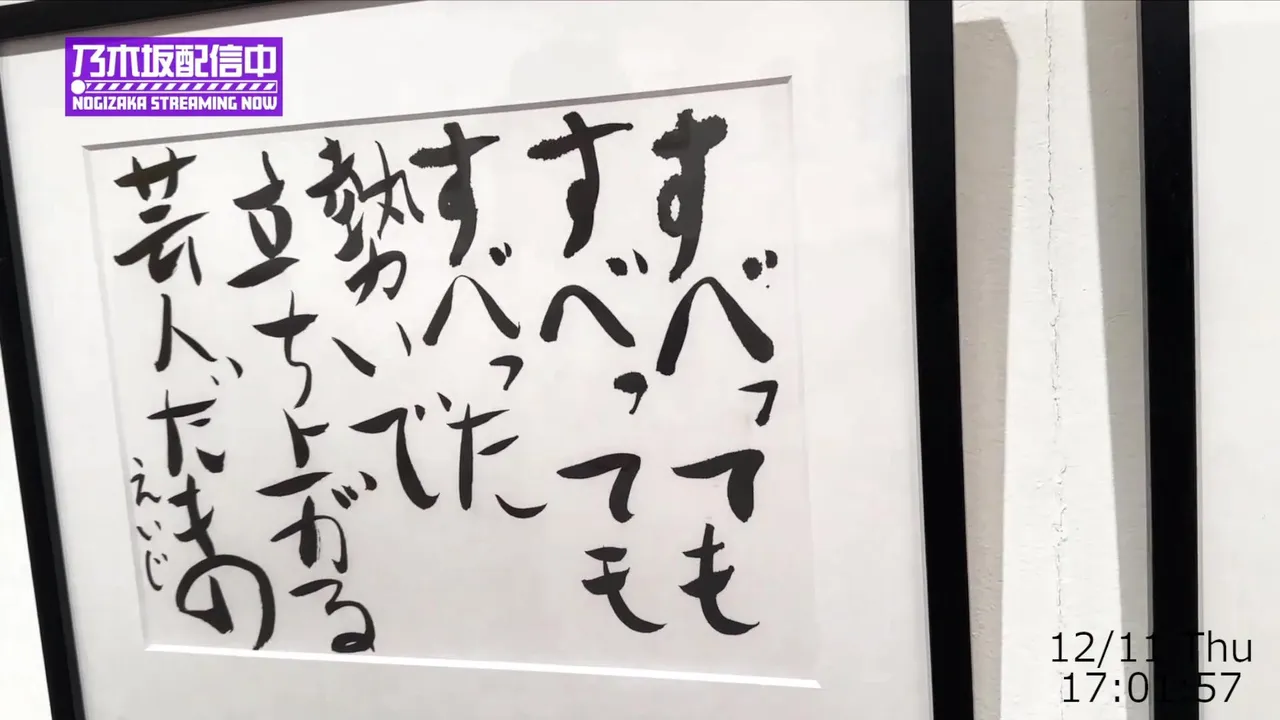 乃木坂配信中
NOGIZAKA STREAMING NOW
すべっても
すべってモ
すべった
勢いで
立ち上がる
芸人だもの
えいじ
12/11 Thu
17:01:57